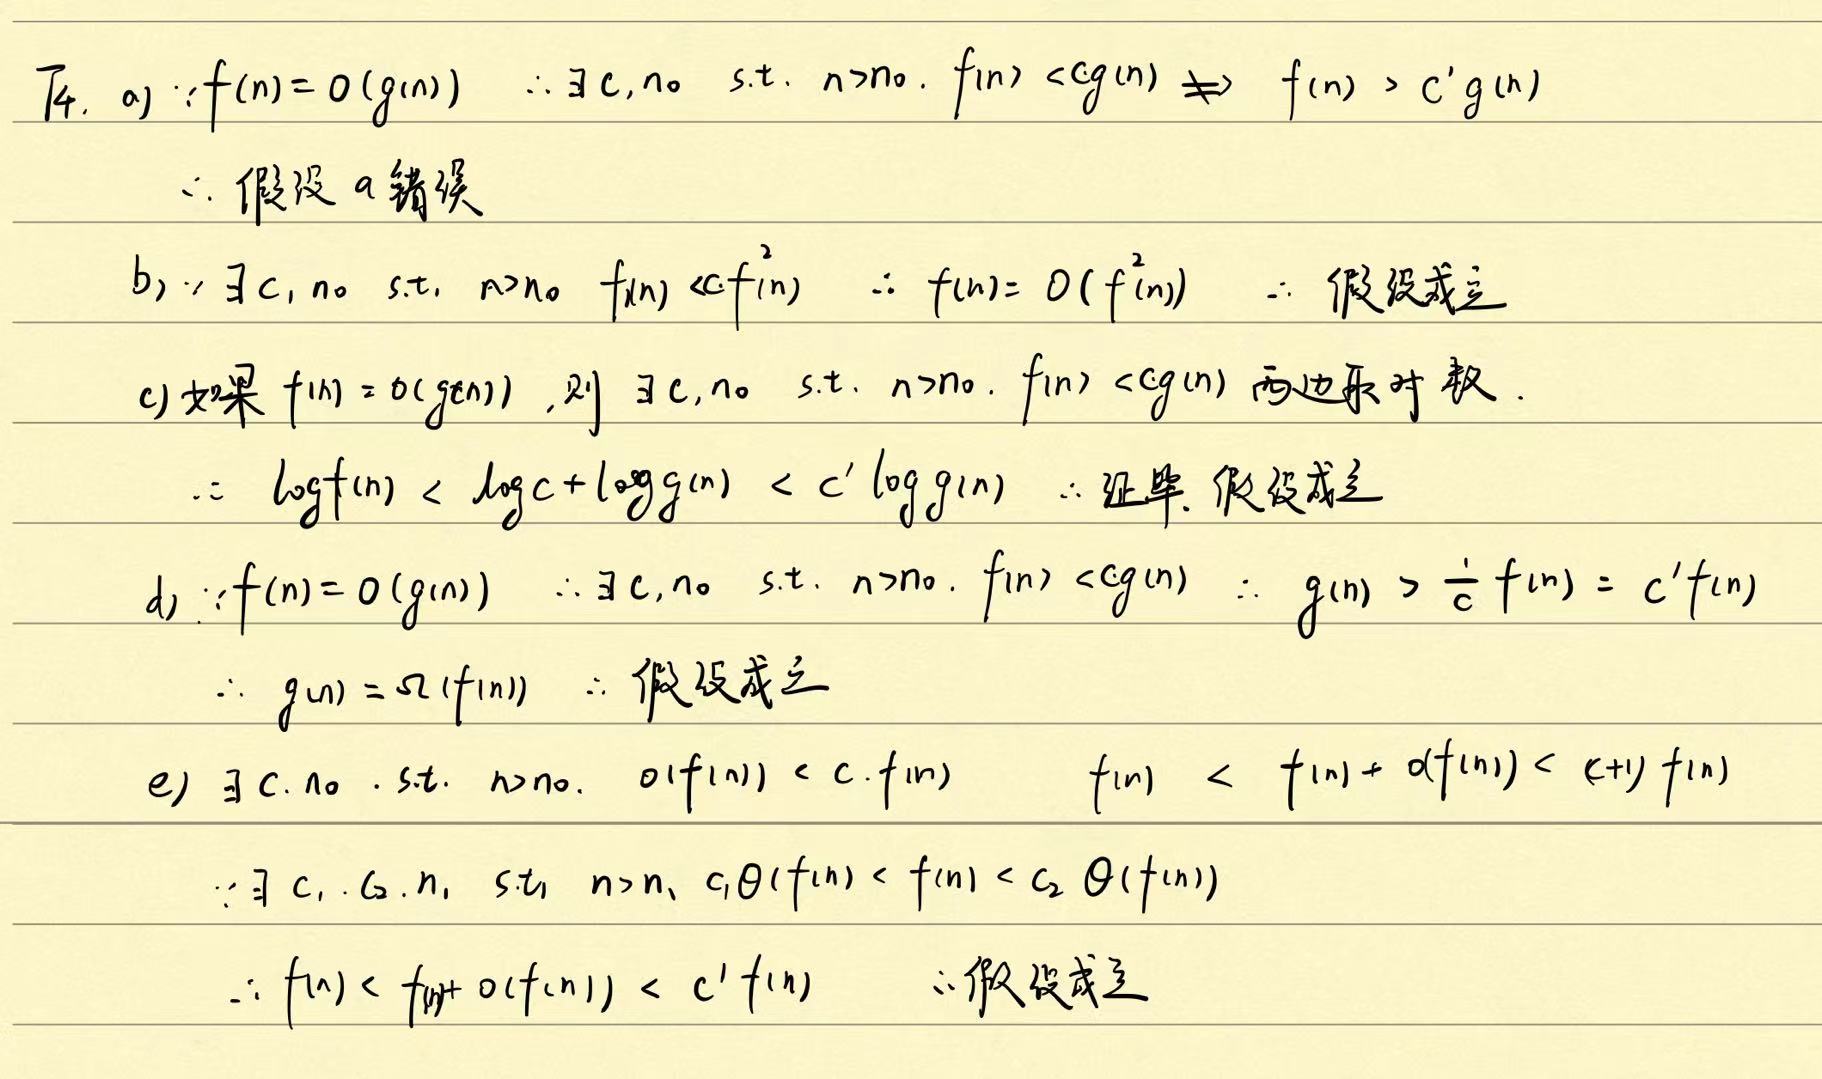 T4. a) ∵ f(n) = O(g(n)) ∴ ∃ c, n₀ s.t. n>n₀. f(n) < cg(n) ⇏ f(n) > c'g(n)
∴ 假设 a 错误
b) ∵ ∃ c, n₀ s.t. n>n₀ f(n) < c·f²(n) ∴ f(n) = O(f²(n)) ∴ 假设成立
c) 如果 f(n) = O(g(n)), 则 ∃ c, n₀ s.t. n>n₀. f(n) < cg(n) 两边取对数.
∴ log f(n) < log c + log g(n) < c' log g(n) ∴ 证毕. 假设成立
d) ∵ f(n) = O(g(n)) ∴ ∃ c, n₀ s.t. n>n₀. f(n) < cg(n) ∴ g(n) > 1/c f(n) = c'f(n)
∴ g(n) = Ω(f(n)) ∴ 假设成立
e) ∃ c. n₀. s.t. n>n₀. o(f(n)) < c·f(n) f(n) < f(n) + o(f(n)) < (c+1) f(n)
∵ ∃ c₁. c₂. n₁ s.t. n>n₁ c₁θ(f(n) < f(n) < c₂ θ(f(n))
∴ f(n) < f(n) + o(f(n)) < c' f(n) ∴ 假设成立